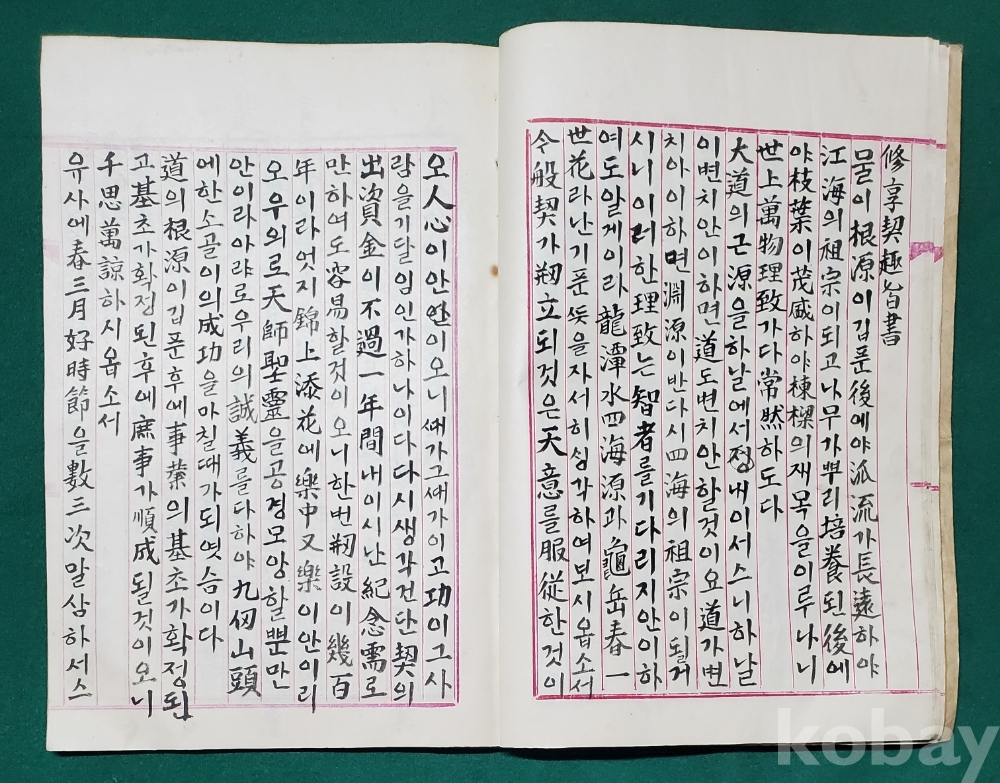 修享契趣旨書
물이根源이깁픈後에야派流가長遠하야
江海의祖宗이되고나무가뿌리培養된後에
야枝葉이茂盛하야棟樑의재목을이루나니
世上萬物理致가다常然하도다
大道의근源을하날에서정내이서스니하날
이변치안이하면道도변치안할것이요道가변
치아이하면淵源이반다시四海의祖宗이될거
시니이러한理致는智者를기다리지안이하
여도알게이라龍潭水四海源과龜岳春一
世花라난기푼뜻을자서히싱각하여보시옵소서
今般契가刱立되것은天意를服從한것이
오人心이안연이오니때가그때가이고功이그사
람을기달임인가하나이다다시생각건단契의
出資金이不過一年間내이시난紀念需로
만하여도容易할것이오니한번刱設이幾百
年이라엇지錦上添花에樂中又樂이안이리
오우의로天師聖靈을공경모앙할뿐만
안이라아랴로우리의誠義를다하야九仞山頭
에한소골이의成功을마칠때가되엿슴이다
道의根源이깁푼후에事業의基초가확정된
고基초가확정된후에庶事가順成될것이오니
千思萬諒하시옵소서
유사에春三月好時節을數三次말삼하서스
kobay